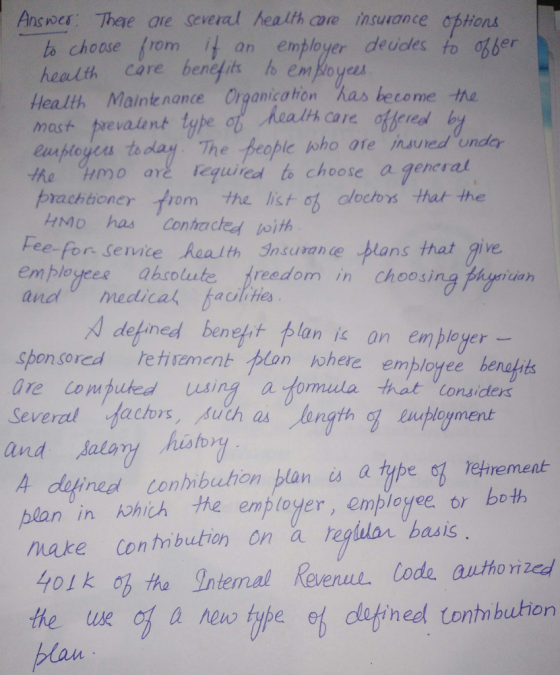 Answer: There are several health care insurance options
to choose from if an employer decides to offer
health care benefits to employees.
Health Maintenance Organisation has become the
most prevalent type of healthcare offered by
employers today. The people who are insured under
the HMO are required to choose a general
practitioner from the list of doctors that the
HMO has contracted with.
Fee-for-service health Insurance plans that give
employees absolute freedom in choosing physician
and medical facilities.
A defined benefit plan is an employer-
sponsored retirement plan where employee benefits
are computed using a formula that considers
several factors, such as length of employment
and salary history.
A defined contribution plan is a type of retirement
plan in which the employer, employee or both
make contribution on a regular basis.
401k of the Internal Revenue Code authorized
the use of a new type of defined contribution
plan.